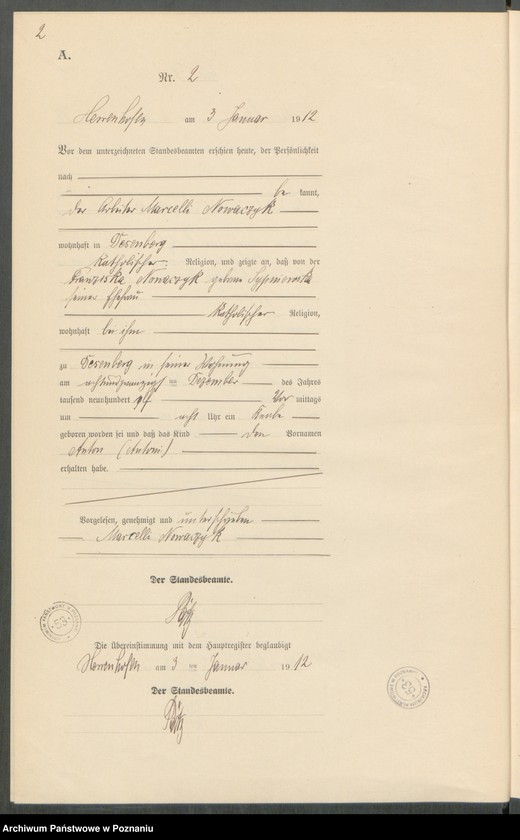 2
A.
Nr. 2
Herrenhofen am 3 Januar 1912
Vor dem unterzeichneten Standesbeamten erschien heute, der Persönlichkeit
nach
be kannt,
der Arbeiter Marcelli Nowaczyk
wohnhaft in Desenberg
Katholischer Religion, und zeigte an, daß von der
Franziska Nowaczyk geborne
seiner Ehefrau
Katholischer Religion,
wohnhaft bei ihm
zu Desenberg in seiner Wohnung
am achtundzwanzigsten Dezember des Jahres
tausend neunhundert elf Vor mittags
um acht Uhr ein Knabe
geboren worden sei und daß das Kind den Vornamen
Anton (Antoni)
erhalten habe.
Vorgelesen, genehmigt und unterschrieben
Marcelli Nowaczyk
Der Standesbeamte.
Die Übereinstimmung mit dem Hauptregister beglaubigt
Herrenhofen am 3 ten Januar 1912
Der Standesbeamte.
53
53
Archiwum Państwowe w Poznaniu